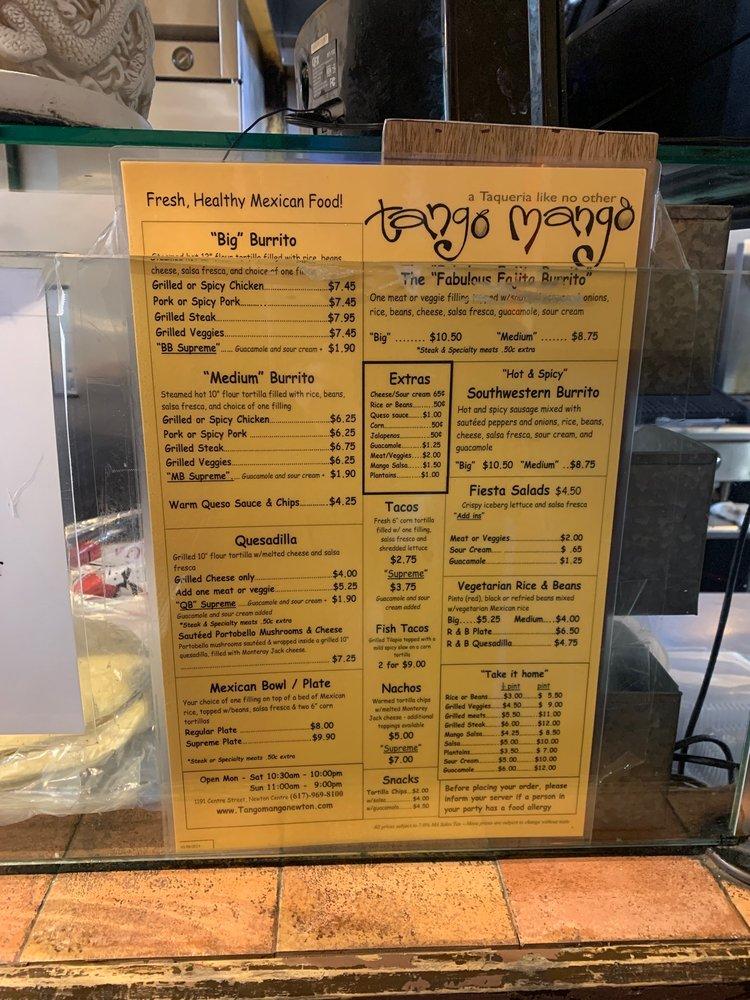 Fresh, Healthy Mexican Food!
a Taqueria like no other
tango mango
"Big" Burrito
Steamed hot 12" flour tortilla filled with rice, beans,
cheese, salsa fresca, and choice of one
Grilled or Spicy Chicken $7.45
Pork or Spicy Pork $7.45
Grilled Steak $7.95
Grilled Veggies $7.45
"BB Supreme" Guacamole and sour cream + $1.90
"Medium" Burrito
Steamed hot 10" flour tortilla filled with rice, beans,
salsa fresca, and choice of one filling
Grilled or Spicy Chicken $6.25
Pork or Spicy Pork $6.25
Grilled Steak $6.75
Grilled Veggies $6.25
"MB Supreme" Guacamole and sour cream + $1.90
Warm Queso Sauce & Chips $4.25
Quesadilla
Grilled 10" flour tortilla w/melted cheese and salsa
fresca
Grilled Cheese only $4.00
Add one meat or veggie $5.25
"QB" Supreme Guacamole and sour cream + $1.90
Guacamole and sour cream added
*Steak & Specialty meats .50c extra
Sautéed Portobello Mushrooms & Cheese
Portobello mushrooms sautéed & wrapped inside a grilled 10"
quesadilla, filled with Monterey Jack cheese.
$7.25
Mexican Bowl / Plate
Your choice of one filling on top of a bed of Mexican
rice, topped w/beans, salsa fresca & two 6" corn
tortillas
Regular Plate $8.00
Supreme Plate $9.90
*Steak or Specialty meats .50c extra
Open Mon - Sat 10:30am - 10:00pm
Sun 11:00am - 9:00pm
1191 Centre Street, Newton Centre (617)-969-8100
www.Tangomangonewton.com
The "Fabulous Fajita Burrito"
One meat or veggie filling w/ onions,
rice, beans, cheese, salsa fresca, guacamole, sour cream
"Big" ........ $10.50 "Medium" ....... $8.75
*Steak & Specialty meats .50c extra
Extras
Cheese/Sour cream 65¢
Rice or Beans 50¢
Queso sauce $1.00
Corn 50¢
Jalapenos 50¢
Guacamole $1.25
Meat/Veggies $2.00
Mango Salsa $1.50
Plantains $1.00
Tacos
Fresh 6" corn tortilla
filled w/ one filling,
salsa fresca and
shredded lettuce
$2.75
"Supreme"
$3.75
Guacamole and sour
cream added
Fish Tacos
Grilled Tilapia topped with a
mild spicy slaw on a corn
tortilla
2 for $9.00
Nachos
Warmed tortilla chips
w/melted Monterey
Jack cheese - additional
toppings available
$5.00
"Supreme"
$7.00
Snacks
Tortilla Chips $2.00
w/salsa $4.00
w/guacamole $4.50
"Hot & Spicy"
Southwestern Burrito
Hot and spicy sausage mixed with
sautéed peppers and onions, rice, beans,
cheese, salsa fresca, sour cream, and
guacamole
"Big" $10.50 "Medium" ..$8.75
Fiesta Salads $4.50
Crispy iceberg lettuce and salsa fresca
"Add ins"
Meat or Veggies $2.00
Sour Cream $ .65
Guacamole $1.25
Vegetarian Rice & Beans
Pinto (red), black or refried beans mixed
w/vegetarian Mexican rice
Big.....$5.25 Medium....$4.00
R & B Plate $6.50
R & B Quesadilla $4.75
"Take it home"
½ pint pint
Rice or Beans $3.00 $ 5.50
Grilled Veggies $4.50 $ 9.00
Grilled meats $5.50 $11.00
Grilled Steak $6.00 $12.00
Mango Salsa $4.25 $ 8.50
Salsa $5.00 $10.00
Plantains $3.50 $ 7.00
Sour Cream $5.00 $10.00
Guacamole $6.00 $12.00
Before placing your order, please
inform your server if a person in
your party has a food allergy
All prices subject to 7.0% MA Sales Tax - Menu prices are subject to change without notice